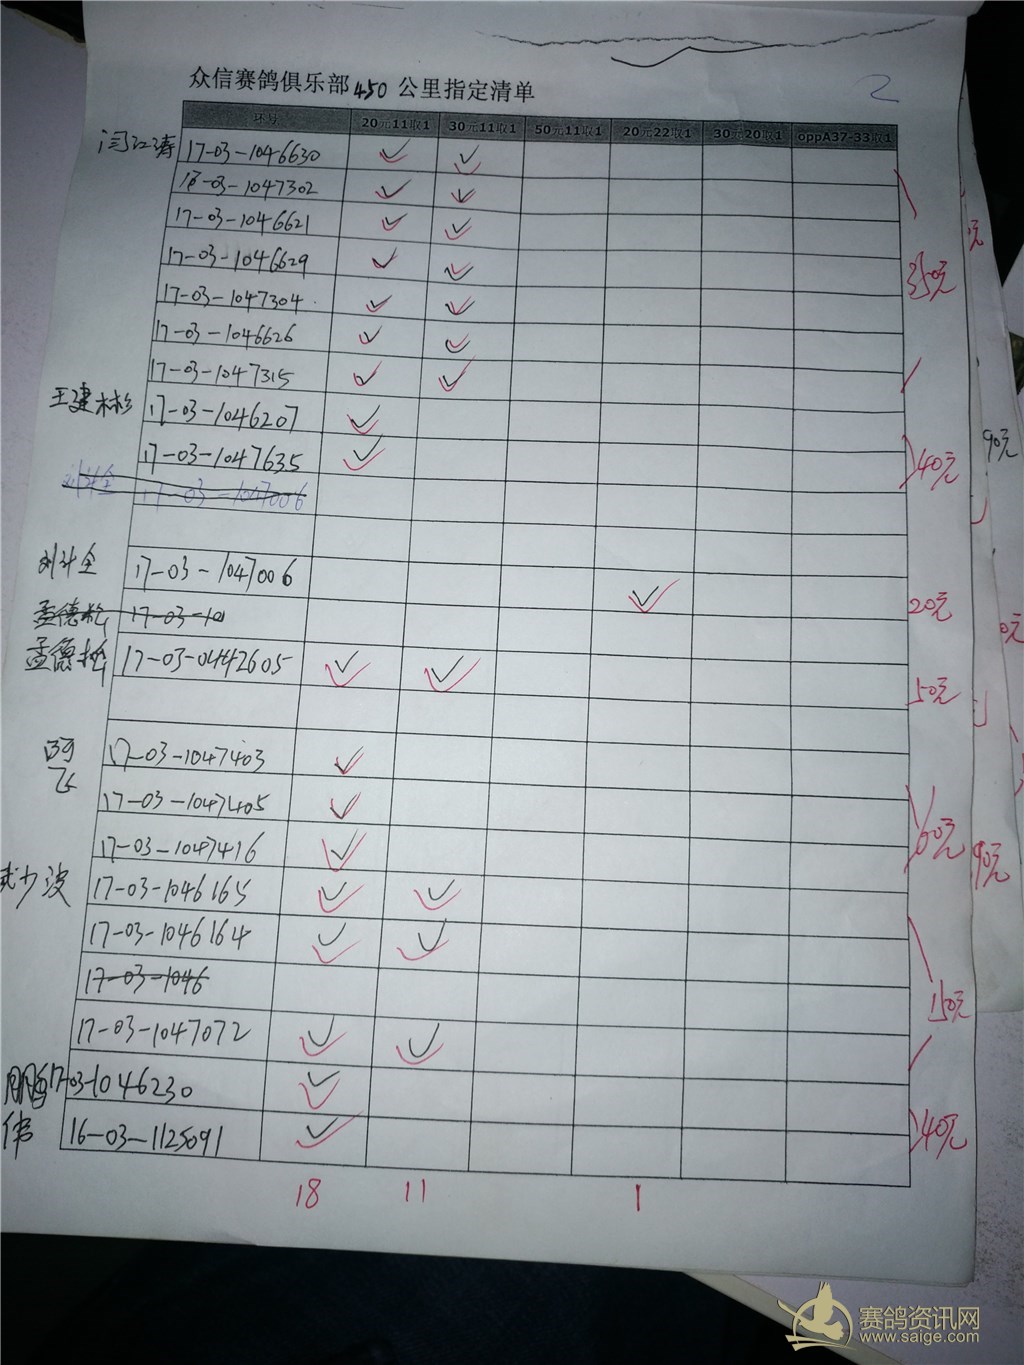 2
众信赛鸽俱乐部450公里指定清单
环号 20元11取1 30元11取1 50元11取1 20元22取1 30元20取1 oppA37-33取1
闫江涛 17-03-1046630 ✓ ✓
-03-1047302 ✓ ✓
17-03-1046621 ✓ ✓
17-03-1046629 ✓ ✓ 350元
17-03-1047304 ✓ ✓
17-03-1046626 ✓ ✓
17-03-1047315 ✓ ✓
王建彬 17-03-1046207 ✓
17-03-1047635 ✓ 40元
17-03-1047006
刘计全 17-03-1047006 ✓ 20元
孟德松 17-03-10
孟德松 17-03-0442605 ✓ ✓ 50元
阿飞 17-03-1047403 ✓
17-03-1047405 ✓ 60元
17-03-1047416 ✓
武少波 17-03-1046165 ✓ ✓
17-03-1046164 ✓ ✓
17-03-1046
17-03-1047072 ✓ ✓ 150元
17-03-1046230 ✓
伟 16-03-1125091 ✓ 40元
18 11 1
90元
90元
赛鸽资讯网
www.saige.com